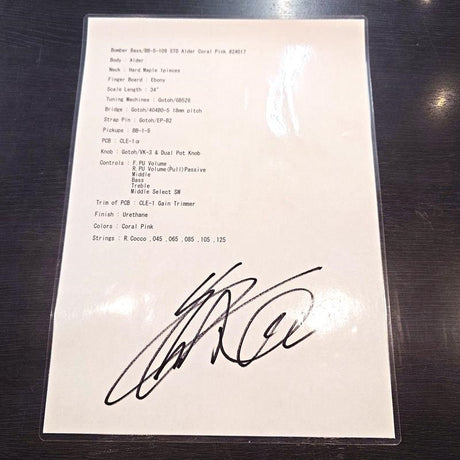 Bomber Bass/BB-5-109 STD Alder Coral Pink #24017
Body : Alder
Neck : Hard Maple 1pieces
Finger Board : Ebony
Scale Length : 34"
Tuning Mechines : Gotoh/GB528
Bridge : Gotoh/404BO-5 18mm pitch
Strap Pin : Gotoh/EP-B2
Pickups : BB-1-5
PCB : CLE-1α
Knob : Gotoh/VK-3 & Dual Pot Knob
Controls : F.PU Volume
R.PU Volume(Pull)Passive
Middle
Bass
Treble
Middle Select SW
Trim of PCB : CLE-1 Gain Trimmer
Finish : Urethane
Colors : Coral Pink
Strings : R.Cocco ,045 ,065 ,085 ,105 ,125